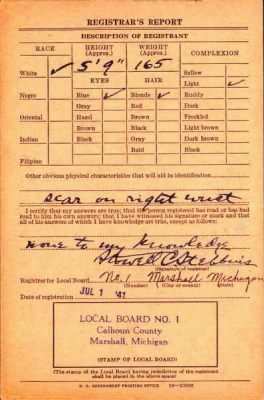 REGISTRAR'S REPORT
DESCRIPTION OF REGISTRANT
RACE HEIGHT (Approx.) WEIGHT (Approx.) COMPLEXION
White ✓ 5' 9" 165 Sallow
EYES HAIR Light ✓
Negro Blue ✓ Blonde ✓ Ruddy
Gray Red Dark
Oriental Hazel Brown Freckled
Brown Black Light brown
Indian Black Gray Dark brown
Bald Black
Filipino
Other obvious physical characteristics that will aid in identification
scar on right wrist
I certify that my answers are true; that the person registered has read or has had
read to him his own answers; that I have witnessed his signature or mark and that
all of his answers of which I have knowledge are true, except as follows:
none to my knowledge
C Stebbins
(Signature of registrar)
Registrar for Local Board No. 1 Marshall Michigan
(Number) (City or county) (State)
Date of registration JUL 1 '41
LOCAL BOARD NO. 1
Calhoun County
Marshall, Michigan
(STAMP OF LOCAL BOARD)
(The stamp of the Local Board having jurisdiction of the registrant
shall be placed in the above space)
U. S. GOVERNMENT PRINTING OFFICE